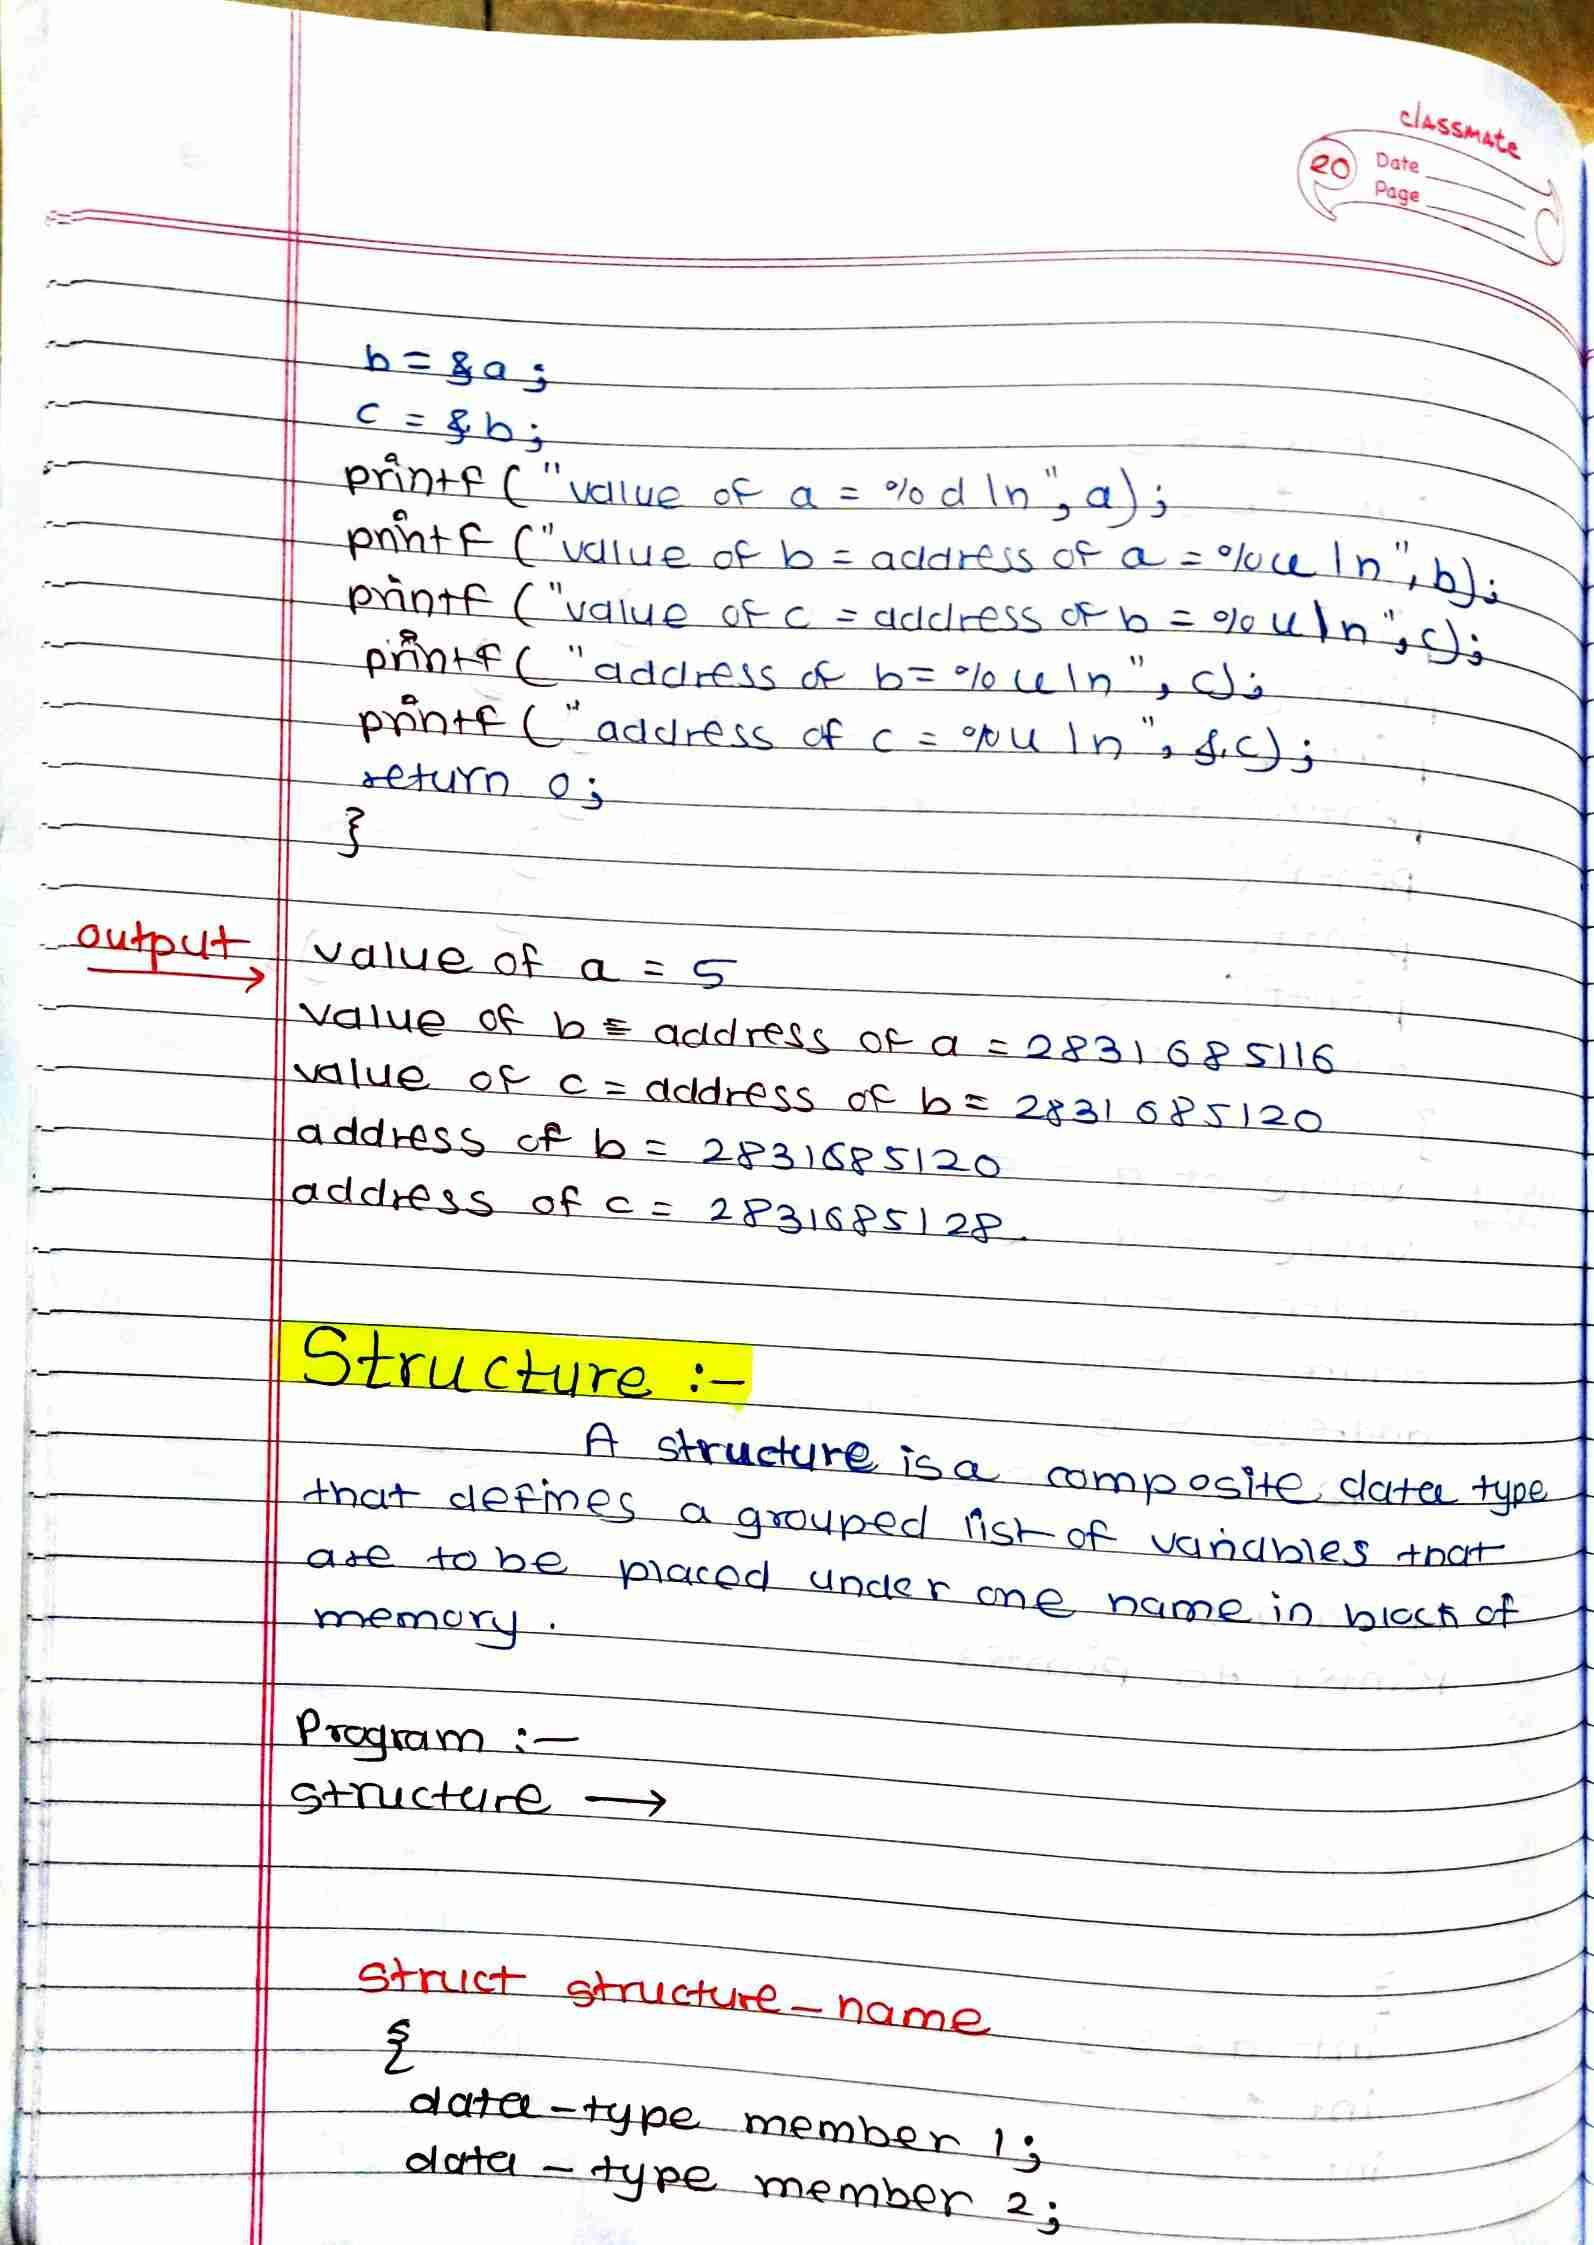 classmate
20 Date
Page
b = &a;
c = &b;
printf ("value of a = %d \n", a);
printf ("value of b = address of a = %u \n", b);
printf ("value of c = address of b = %u \n", c);
printf ( "address of b = %u \n", c);
printf ( "address of c = %u \n", &c);
return 0;
}
output value of a = 5
value of b = address of a = 2831685116
value of c = address of b = 2831685120
address of b = 2831685120
address of c = 2831685128.
Structure :-
A structure is a composite data type
that defines a grouped list of variables that
are to be placed under one name in block of
memory.
Program :-
structure →
struct structure-name
{
data-type member 1;
data-type member 2;